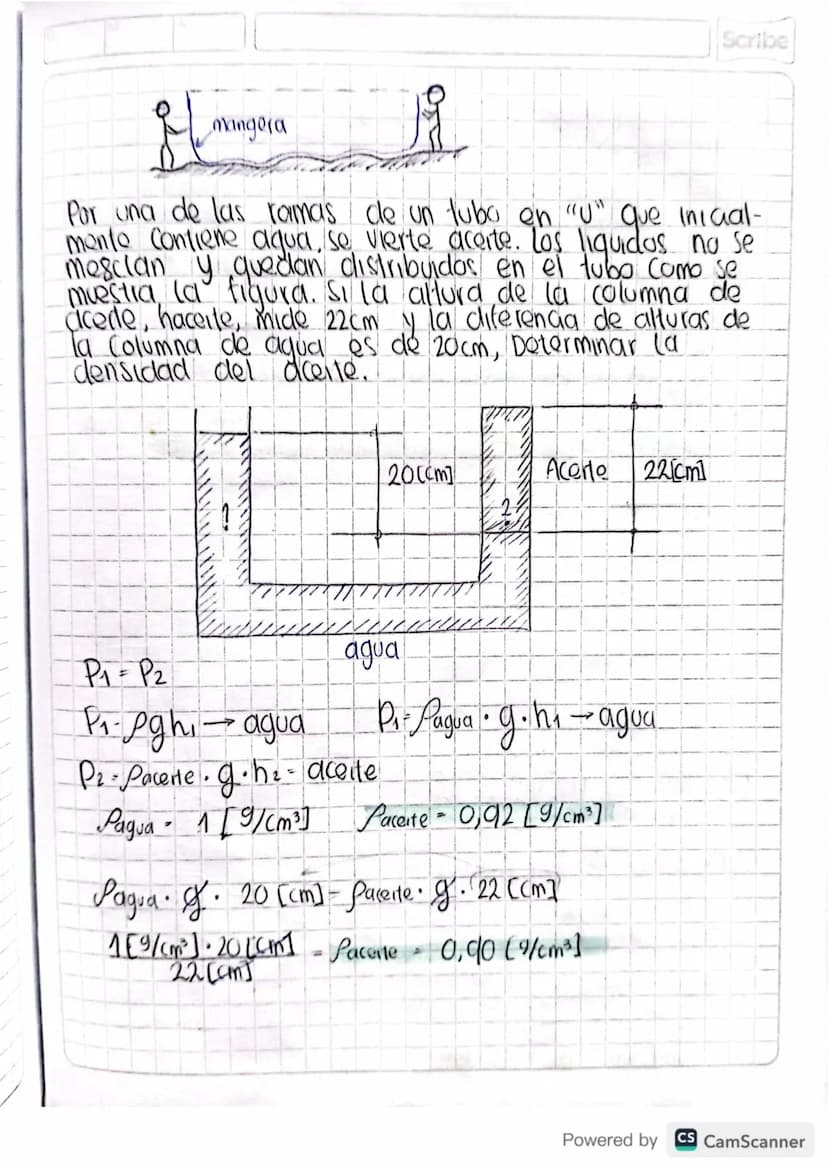 Scribe
mangera
Por una de las ramas de un tubo en "U" que inicial-
mente contiene agua, se vierte aceite. Los liquidos no se
mesclan y quedan distribuidos en el tubo como se
muestra la figura. Si la altura de la columna de
aceite, haceite, mide 22cm y la diferencia de alturas de
la columna de agua es de 20cm, Determinar la
densidad del aceite.
20[cm] Aceite 22[cm]
1 2
agua
P1 = P2
P1 = ρgh1 → agua P1 = ρagua · g · h1 → agua
P2 = ρaceite · g · h2 = aceite
ρagua = 1 [g/cm³] ρaceite = 0,92 [g/cm³]
ρagua · g · 20 [cm] = ρaceite · g · 22 [cm]
1[g/cm³] · 20 [cm] = ρaceite = 0,90 [g/cm³]
22[cm]
Powered by CS CamScanner